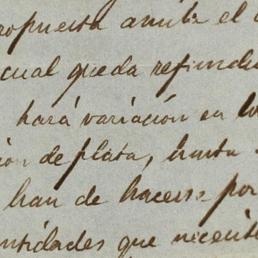 ropuesta arriba el
cual queda refundi
hará variación en lo
ión de plata, hasta
han de hacerse por
ntidades que necesit